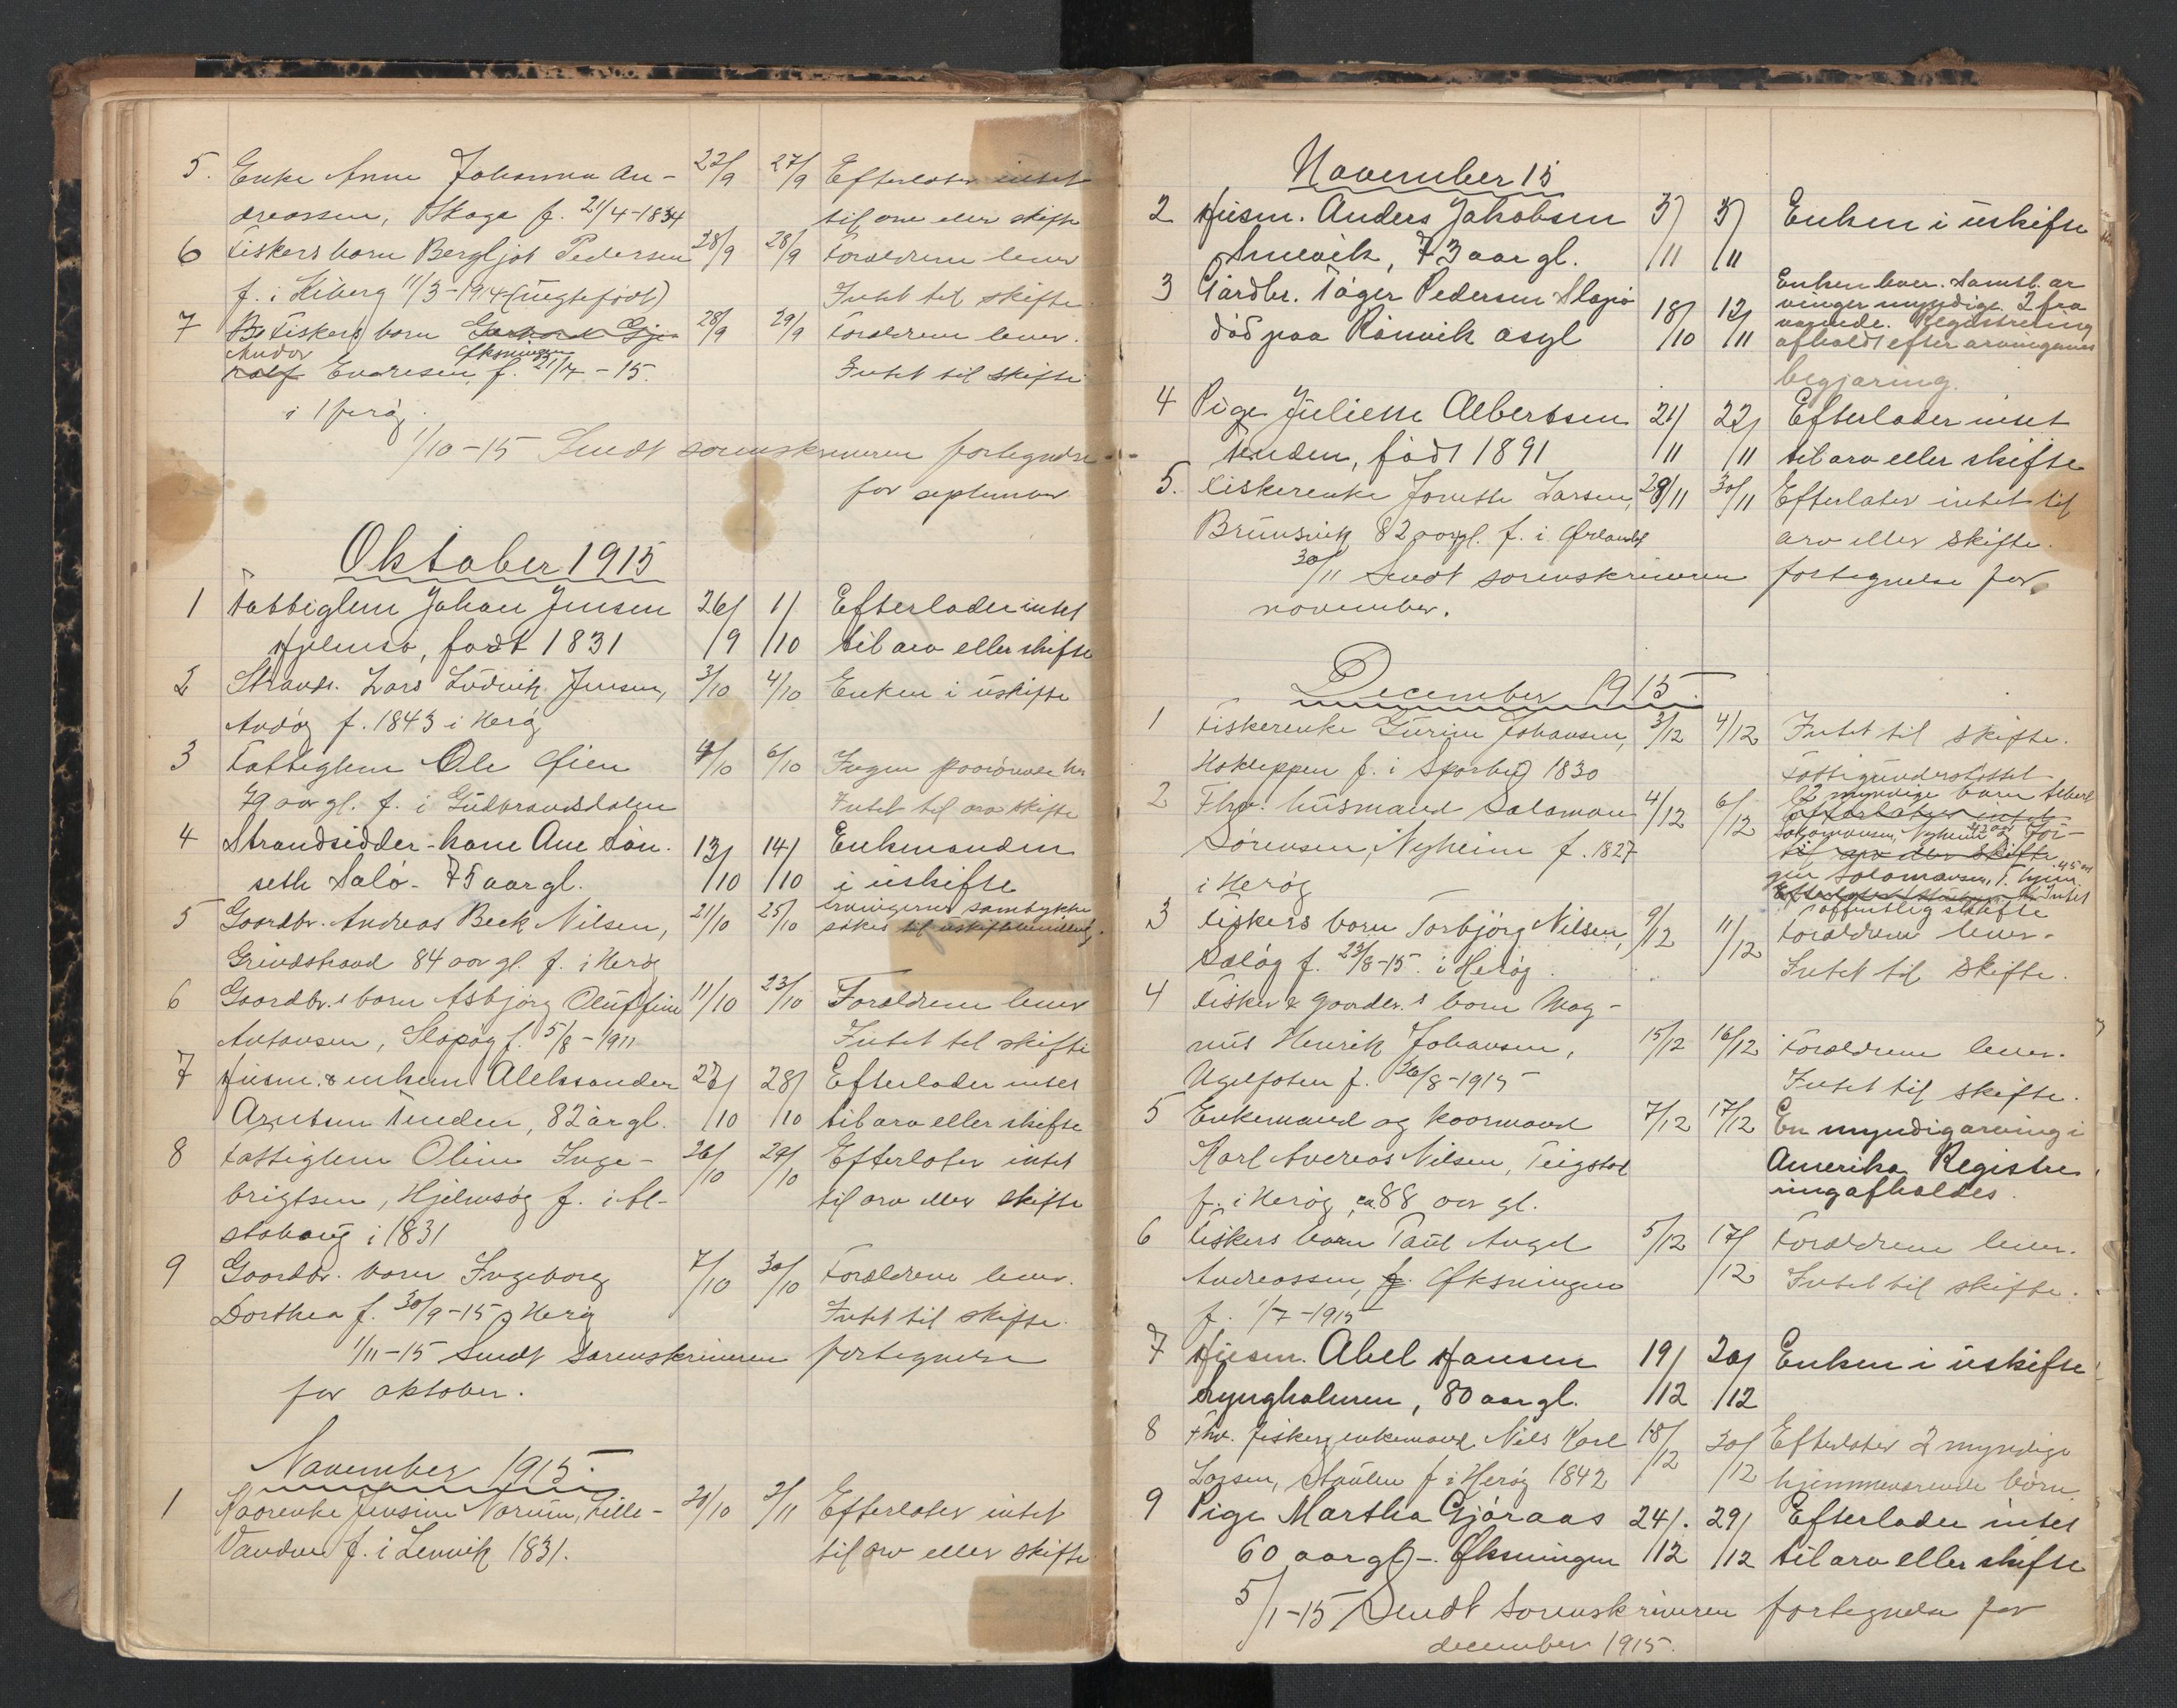 5. Enke Anne Johanna An- 22/9 27/9 Efterlater intet
dreassen, Skaga f. 21/4-1834 til arv eller skifte
6 Fiskers barn Bergljot Pedersen 28/9 28/9 Forældrene lever
f. i Kiberg 11/3-1914 (uegtefødt) Intet til skifte
7 Fiskers barn 28/9 29/9 Forældrene lever.
Andor Øksningen
Rolf Evaresen f. 21/4-15. Intet til skifte
i Herøy.
1/10-15 Sendt sorenskriveren fortegnelse
for september
Oktober 1915
1 Fattiglem Johan Jensen 26/9 1/10 Efterlader intet
Hjelmsø, født 1831 til arv eller skifte
2 Strands. Lars Ludvik Jensen, 3/10 4/10 Enken i uskifte
Andøy f. 1843 i Herøy
3 Fattiglem Ole Øien 4/10 6/10 Ingen paarørende her
79 aar gl. f. i Gudbrandsdalen Intet til arv skifte
4 Strandsidder-kone Ane Løn- 13/10 14/10 Enkemanden
seth Salø - 75 aar gl. i uskifte
5 Gaardbr. Andreas Beck Nilsen, 21/10 25/10 Arvingernes samtykke
søkes til uskiftebevilling.
Grindstrand 84 aar gl. f. i Herøy
6 Gaardbr.s barn Asbjørg Oluffine 11/10 23/10 Forældrene lever
Antonsen, Slapøy f. 5/8-1911 Intet til skifte
7 Husm. & enkem. Aleksander 27/10 28/10 Efterlader intet
Arntsen Tenden, 82 år gl. til arv eller skifte
8 Fattiglem Oline Inge- 26/10 29/10 Efterlater intet
brigtsen, Hjelmsøy f. i Al- til arv eller skifte
stahaug i 1831
9 Gaardbr. barn Ingeborg 7/10 30/10 Forældrene lever.
Dorthea f. 30/9-15 i Herøy Intet til skifte.
1/11-15 Sendt sorenskriveren fortegnelse
for oktober.
November 1915.
1 Kaarenke Jensine Norum, Lille- 21/10 2/11 Efterlater intet
Vandve f. i Lenvik 1831. til arv eller skifte
November 15
2 Husm. Anders Jakobsen 3/11 3/11 Enken i uskifte
Snevik, 73 aar gl.
3 Gårdbr. Tøger Pedersen Slapø 18/10 12/11 Enken lever. Samtl. ar
vinger myndige. 2 fra
død paa Rønvik asyl værende. Registrering
afholdt efter arvingernes
begjæring.
4 Pige Juliette Albertsen 21/11 22/11 Efterlader intet
Tenden, født 1891 til arv eller skifte
5. Fiskerenke Jonette Larsen, 29/11 30/11 Efterlater intet til
Brunsvik 82 aar gl. f. i Ørlandet arv eller skifte.
30/11 Sendt sorenskriveren fortegnelse for
november.
December 1915.
1 Fiskerenke Gurine Johansen, 3/12 4/12 Intet til skifte.
Hokleppen f. i Sparbu 1830 Fattigunderstøttet
2 Fhv. husmand Salamon 4/12 6/12 2 myndige barn Albert
Efterlater intet
Sørensen, Nyheim f. 1827 Salomonsen, Nyheim og Jør-
til arv eller skifte
i Herøy gen Salomonsen, 45 aar
Intet
offentlig skifte
3 Fiskers barn Torbjørg Nilsen, 9/12 11/12 Forældrene lever.
Saløy f. 23/8-15. i Herøy. Intet til skifte.
4 Fisker & gaardbr.s barn Mag-
nus Henrik Johansen, 15/12 16/12 Forældrene lever.
Ugelfoten f. 26/8-1915 Intet til skifte.
5 Enkemand og kaarmand 7/12 17/12 En myndig arving i
Karl Andreas Nilsen, Teigstad Amerika Registre
f. i Herøy, ca 88 aar gl. ring afholdes.
6 Fiskers barn Paul Angel 5/12 17/12 Forældrene lever.
Andreassen, f. Øksningen Intet til skifte.
f. 1/7-1915
7 Husm. Abel Hansen 19/12 20/12 Enken i uskifte
Lyngholmen, 80 aar gl.
8 Fhv. fisker, enkemand Nils Karl 18/12 30/12 Efterlater 2 myndige
Larsen, Staulen f. i Herøy 1842 hjemmeværende børn
9 Pige Martha Gjøraas 24/12 29/12 Efterlader intet
60 aar gl. - Øksningen til arv eller skifte
5/1-15 Sendt sorenskriveren fortegnelse for
december 1915.